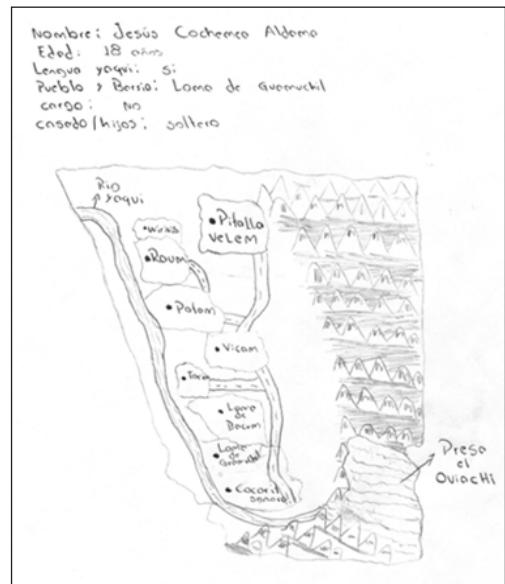 Nombre: Jesús Cochemea Aldama
Edad: 18 años
Lengua yaqui: si
Pueblo y Barrio: Loma de Guamuchil
cargo: no
casado/hijos: soltero
Rio
yaqui
Pitalla
velem
Raum
Potam
Vicam
Loma
de
Bacum
Loma
de
Guamuchil
Cocorit
sonora
Presa
el
Oviachi